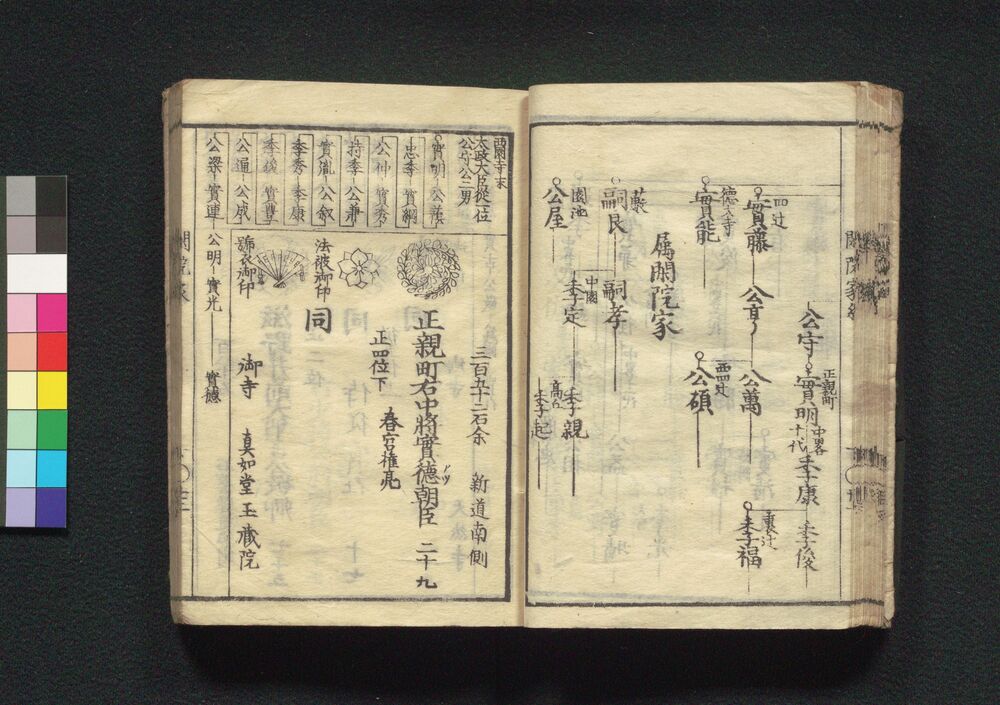 公守
正親町
實明
中畧
十代
季康
季俊
四辻
實藤
公萬
裏辻
季福
德大寺
實能
西四辻
公碩
属閑院家
藪
嗣良
嗣孝
中園
季定
高丘
季起
園池
公屋
季親
西園寺末
太政大臣從一位
公守公二男
實明
公蔭
忠季
實綱
公仲
實秀
持季
公兼
實胤
公叙
季秀
季康
季俊
實豊
公通
公成
公梁
實連
公明
實光
實德
三百五十二石余
新道南側
正親町右中將實德朝臣
二十九
正四位下
春宮権亮
同
法被御印
御寺
真如堂
玉藏院